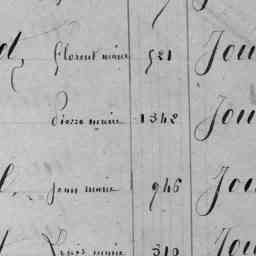 d, florent marie 921 Jou
Pierre marie 1342 Jou
l. jean marie 946 Jou
d Louis marie 310 Jou